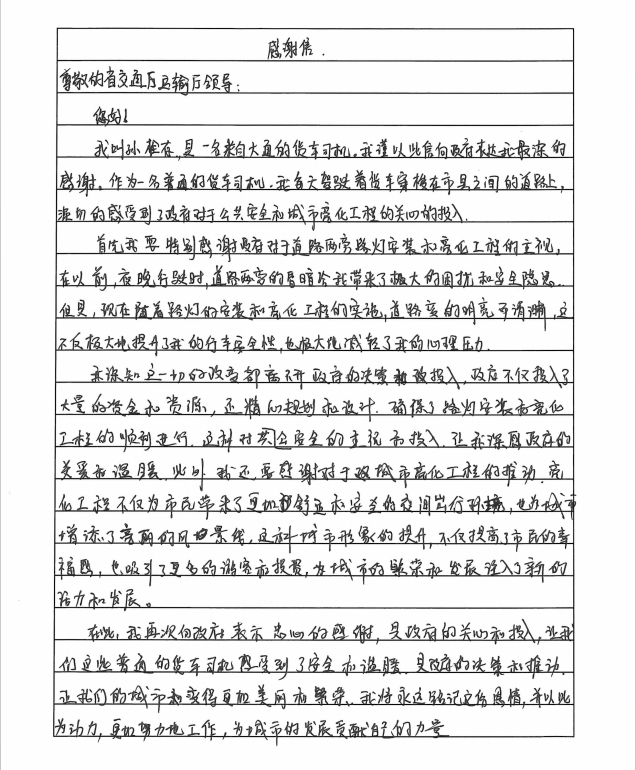 感谢信.
尊敬的省交通厅运输厅领导:
您好!
我叫孙 在,是一名来自大通的货车司机,我谨以此信向政府表达我最深的
感谢。作为一名普通的货车司机,我每天驾驶着货车穿梭在市县之间的道路上,
深切的感受到了政府对于公共安全和城市亮化工程的关心的投入.
首先我要特别感谢政府对于道路两旁路灯安装和亮化工程的重视,
在以前,夜晚行驶时,道路两旁的昏暗给我带来了极大的困扰和安全隐患.
但是,现在随着路灯的安装和亮化工程的实施,道路变的明亮可清晰,这
不仅极大地提升了我的行车安全性,也极大地减轻了我的心理压力.
我深知这一切的改变都离不开政府的决策和投入,政府不仅投入了
大量的资金和资源,还精心规划和设计.确保了路灯安装和亮化
工程的顺利进行.这种对公共安全的重视和投入.让我深感政府的
关爱和温暖.此外我还要感谢对于城市亮化工程的推动.亮
化工程不仅为市民带来了更加舒适和安全的夜间出行环境,也为城市
增添了亮丽的风景线,这种城市形象的提升,不仅提高了市民的幸
福感,也吸引了更多的游客和投资,为城市的繁荣和发展注入了新的
活力和发展。
在此,我再次向政府表示忠心的感谢,是政府的关心和投入,让我
们这些普通的货车司机感受到了安全和温暖.是政府的决策和推动.
让我们的城市变得更加美丽和繁荣.我将永远铭记这份恩情,并以此
为动力,更加努力地工作,为城市的发展贡献自己的力量